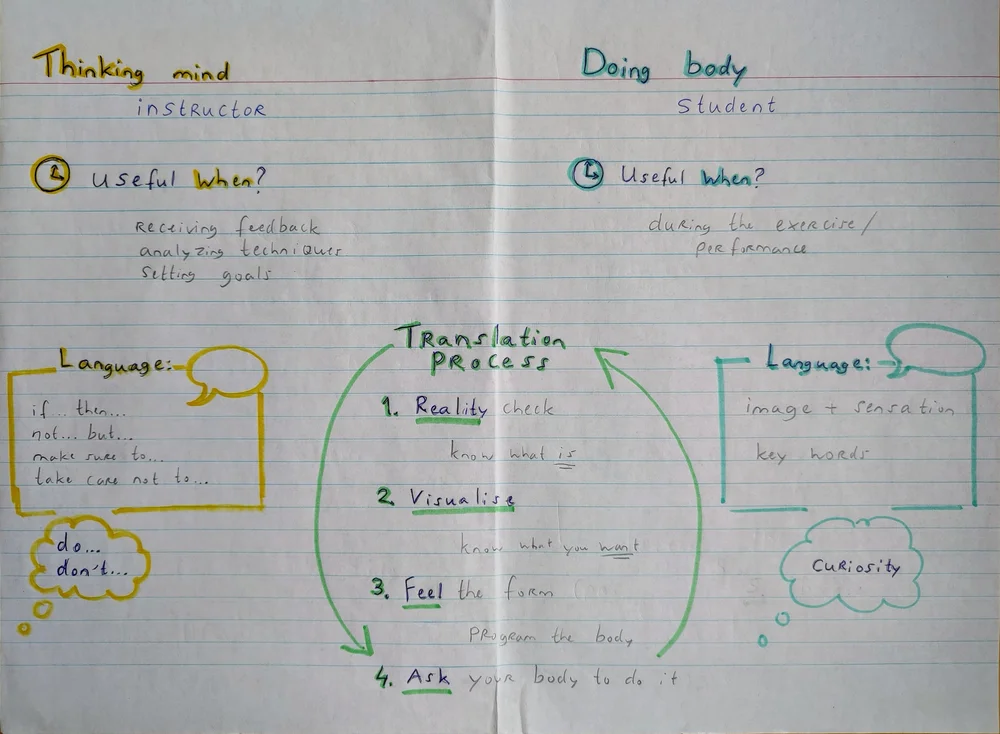 Thinking mind
instructor
Useful When?
Receiving feedback
analyzing techniques
Setting goals
Doing body
Student
Useful When?
during the exercise/
performance
Language:
if.. then...
not... but...
make sure to...
take care not to...
do...
don't...
Translation
Process
1. Reality check
know what is
2. Visualise
know what you want
3. Feel the form
Program the body
4. Ask your body to do it
Language:
image + sensation
key words
Curiosity